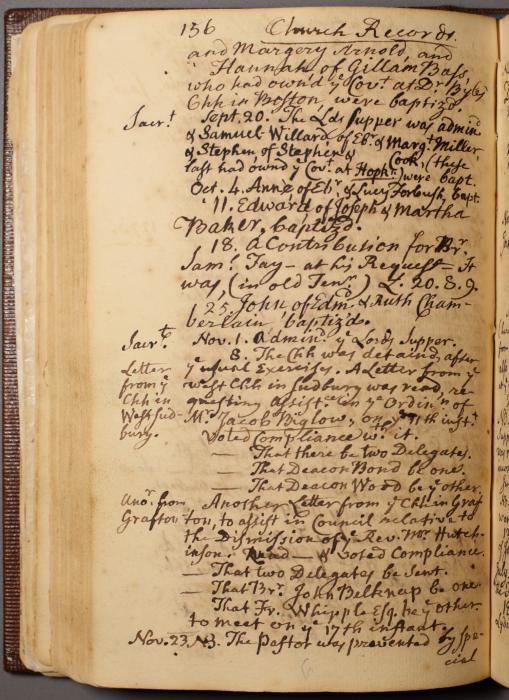 156 Church Records.
and Margery Arnold, and
Hannah of Gillam Bass,
who had own'd yͤ Covt. at Dr. Byles
Chh in Boston, were baptiz'd.
Sacrt. Sept. 20. The Lds Supper was admind
& Samuel Willard of Ebr. & Margt. Miller,
& Stephen of Stephen & Cook, (these
last had own'd yͤ Covt. at Hopkn.) were bapt.
Oct. 4. Anne of Ebr. & Lucy Forbush, bapt.
11. Edward of Joseph & Martha
Baker, baptiz'd.
18. A Contribution for Br.
Saml. Fay — at his Request — It
was, (in old Tenr.) L. 20. 8. 9.
25. John of Edmd. & Ruth Cham-
berlain baptiz'd.
Sacrt. Nov. 1. Admin. yͤ Lords Supper.
8. The Chh was detain'd after
Letter yͤ usual Exercises. A Letter from yͤ
from yͤ west Chh in Sudbury was read, re-
Chh in questing assistce in yͤ Ordinn of
West Sud- Mr. Jacob Biglow, on yͤ 11th instt.
bury. Voted Compliance wth it.
— That there be two Delegates.
— That Deacon Bond be one.
— That Deacon Wood be yͤ other.
Anor. from Another Letter from yͤ Chh in Graf-
Grafton ton, to assist in Council relative to
the Dismission of yͤ Rev. Mr. Hutch-
inson; Read — & voted Compliance.
— That two Delegates be Sent.
— That Br. John Belknap be one.
That Fr. Whipple Esq. be yͤ other.
to meet on yͤ 17th instant.
Nov. 23. NB. The Pastor was prevented by spe-
cial